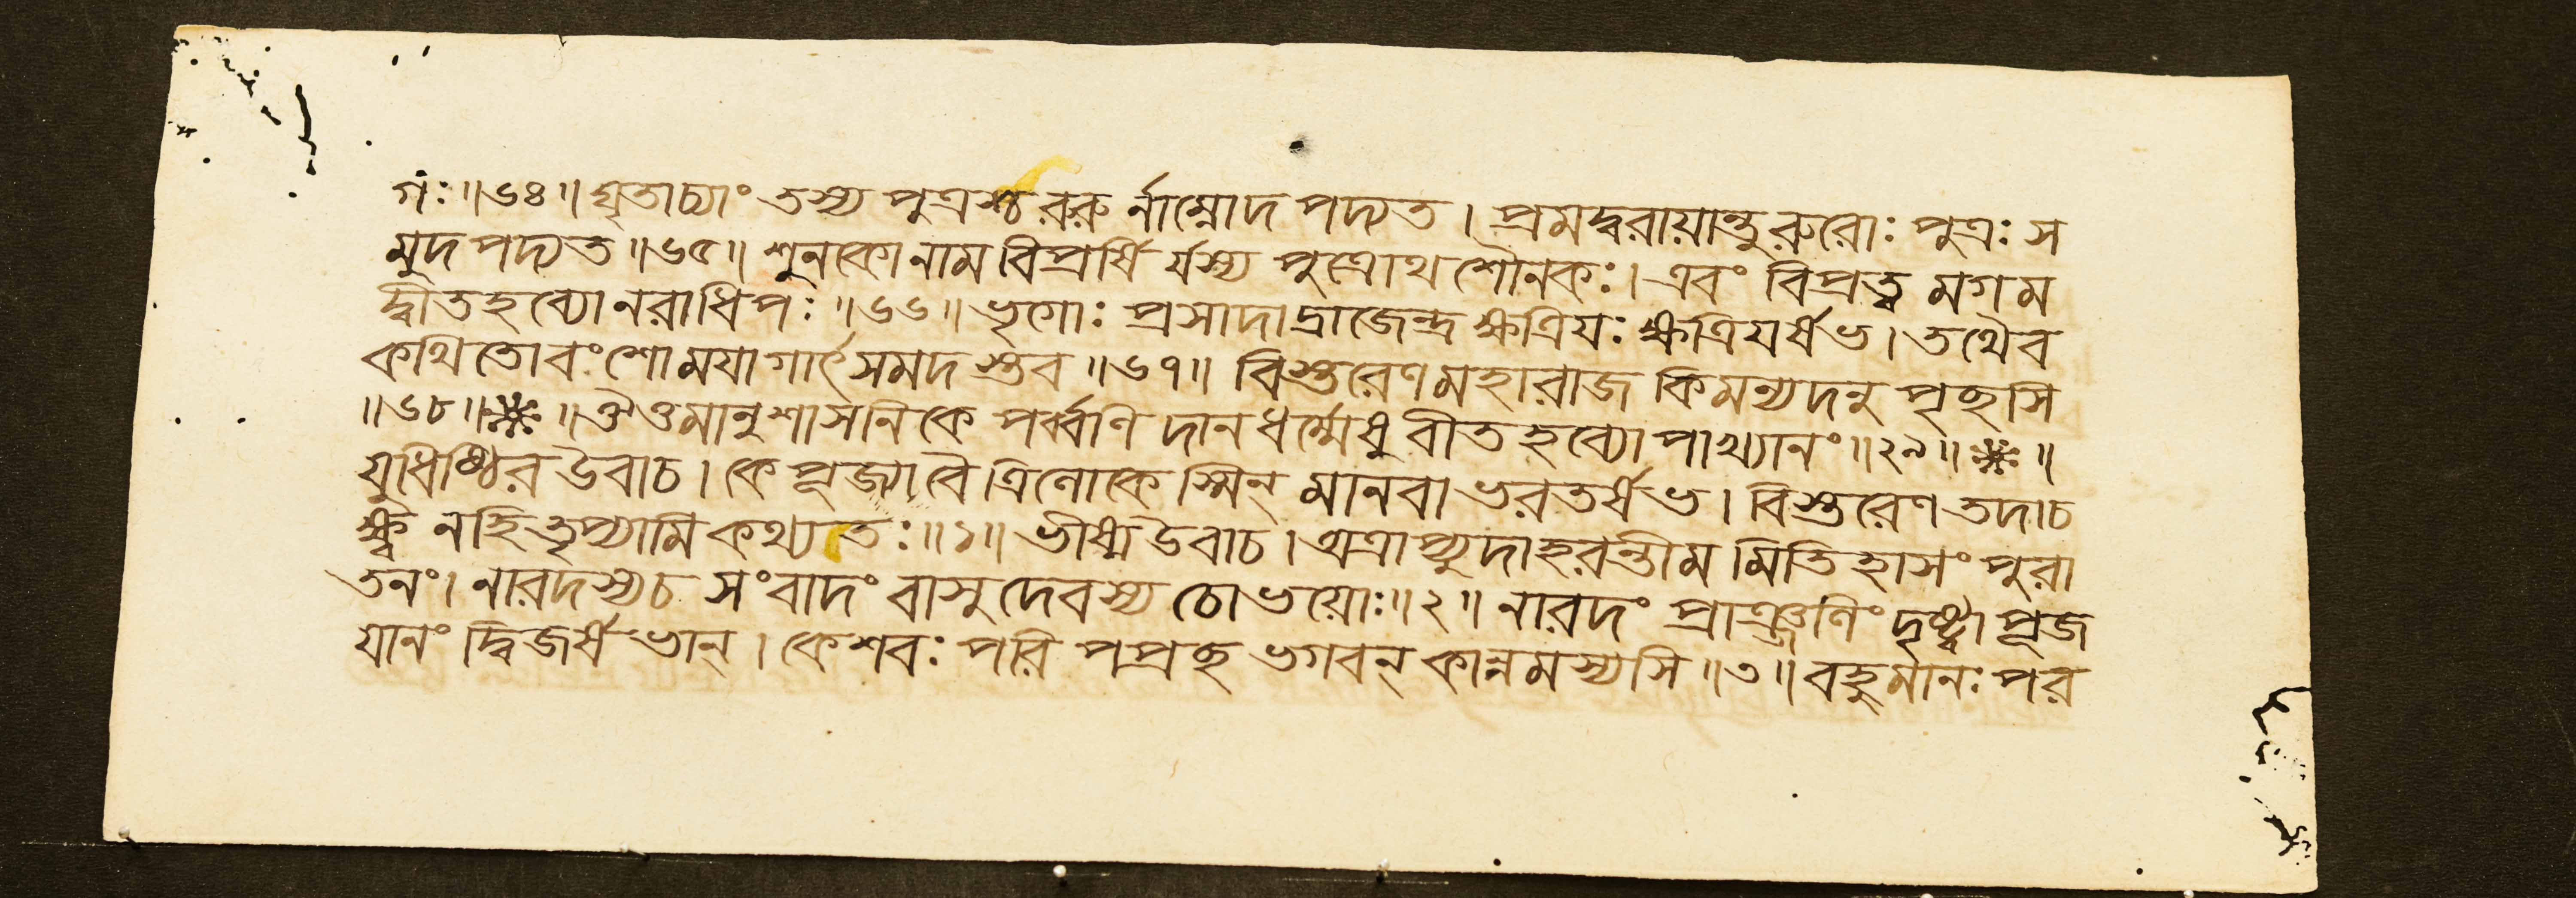 গঃ॥৬৪॥ঘৃতাচ্যাং তস্য পুত্রস্তু রুরু র্নাম্নোদ পদ্যত। প্রমদ্বরায়ান্তু রুরোঃ পুত্রঃ স
মুদ পদ্যত॥৬৫॥ শুনকো নাম বিপ্রর্ষি র্যস্য পুত্রোথ শৌনকঃ। এবং বিপ্রত্ব মগম
দ্বীতহব্যো নরাধিপঃ॥৬৬॥ ভৃগোঃ প্রসাদাদ্রাজেন্দ্র ক্ষত্রিযঃ ক্ষত্রিযর্ষভ। তথৈব
কথিতোবংশো মযা গার্ৎসমদ স্তব॥৬৭॥ বিস্তরেণ মহারাজ কিমন্যদনু পৃছসি
॥৬৮॥※॥ঔওমানুশাসনিকে পর্ব্বণি দানধর্ম্মেষু বীতহব্যোপাখ্যানং॥২৯॥※॥
যুধিষ্ঠির উবাচ। কে পূজ্যা বৈ ত্রিলোকেস্মিন্ মানবা ভরতর্ষভ। বিস্তরেণ তদাচ
ক্ষ্ব নহি তৃপ্যামি কথ্যতঃ॥১॥ ভীষ্ম উবাচ। অত্রাপ্যুদাহরন্তীম মিতিহাসং পুরা
তনং। নারদস্যচ সংবাদং বাসুদেবস্য চোভয়োঃ॥২॥ নারদং প্রাঞ্জলিং দৃষ্ট্বা পূজ
যানং দ্বিজর্ষভান্। কেশবঃ পরি পপ্রছ ভগবন্ কান্নমস্যসি॥৩॥ বহুমানঃ পর